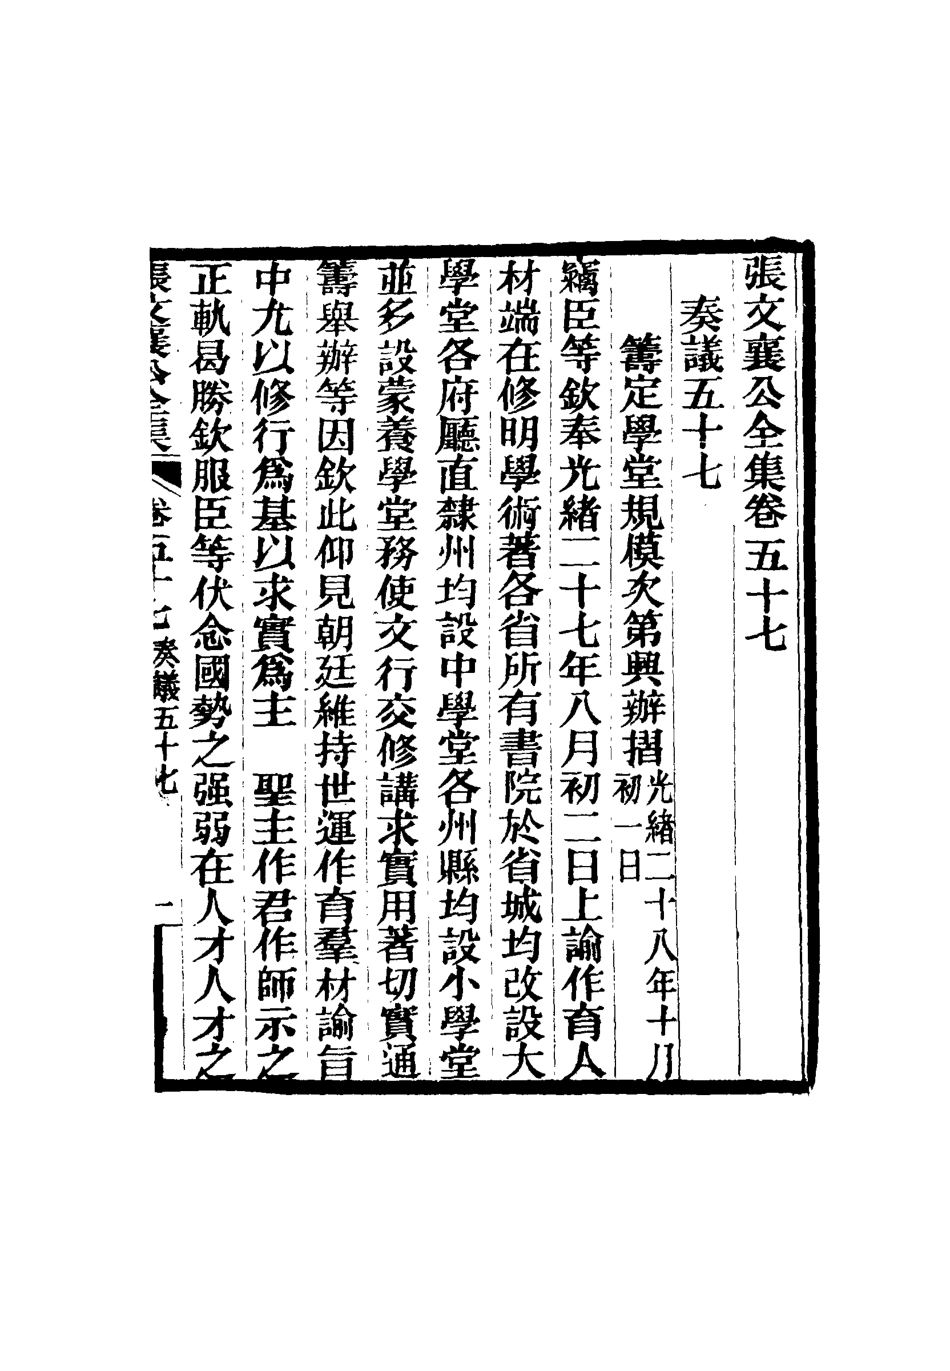 張文襄公全集卷五十七
奏議五十七
籌定學堂規模次第興辦摺光緒二十八年十月初一日
竊臣等欽奉光緒二十七年八月初二日上諭作育人
材端在修明學術著各省所有書院於省城均改設大
學堂各府廳直隸州均設中學堂各州縣均設小學堂
並多設蒙養學堂務使文行交修講求實用著切實通
籌舉辦等因欽此仰見朝廷維持世運作育羣材諭旨
中尤以修行爲基以求實爲主　聖主作君作師示之
正軌曷勝欽服臣等伏念國勢之强弱在人才人才之
張文襄公全集　卷五十七　奏議五十七　一